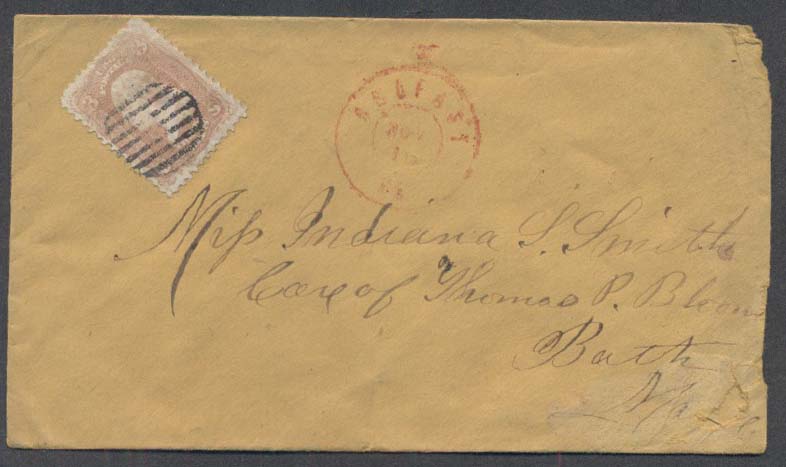 3 3
BELFAST
NOV
Miss Indiana S. Smith
Care of Thomas P. Bloom
Bath